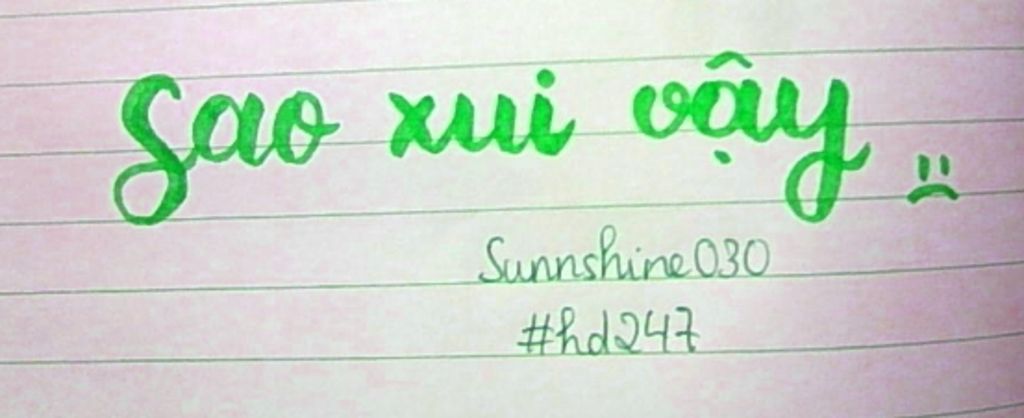 Sao xui vậy
Sunnshine030
#hd247